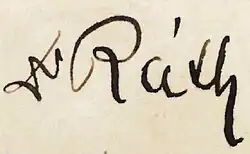 Dr Ráth